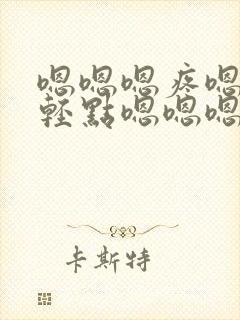 嗯嗯嗯疼嗯
輕點嗯嗯嗯
卡斯特